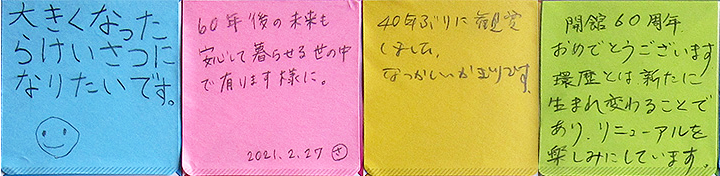 大きくなった
らけいさつに
なりたいです。
60年後の未来も
安心して暮らせる世の中
で有ります様に。
2021.2.27 さ
40年ぶりに観覧
しました。
なつかしいかぎりです。
開館60周年
おめでとうございます
環歴とは新たに
生まれ変わることで
あり、リニューアルを
楽しみにしています。